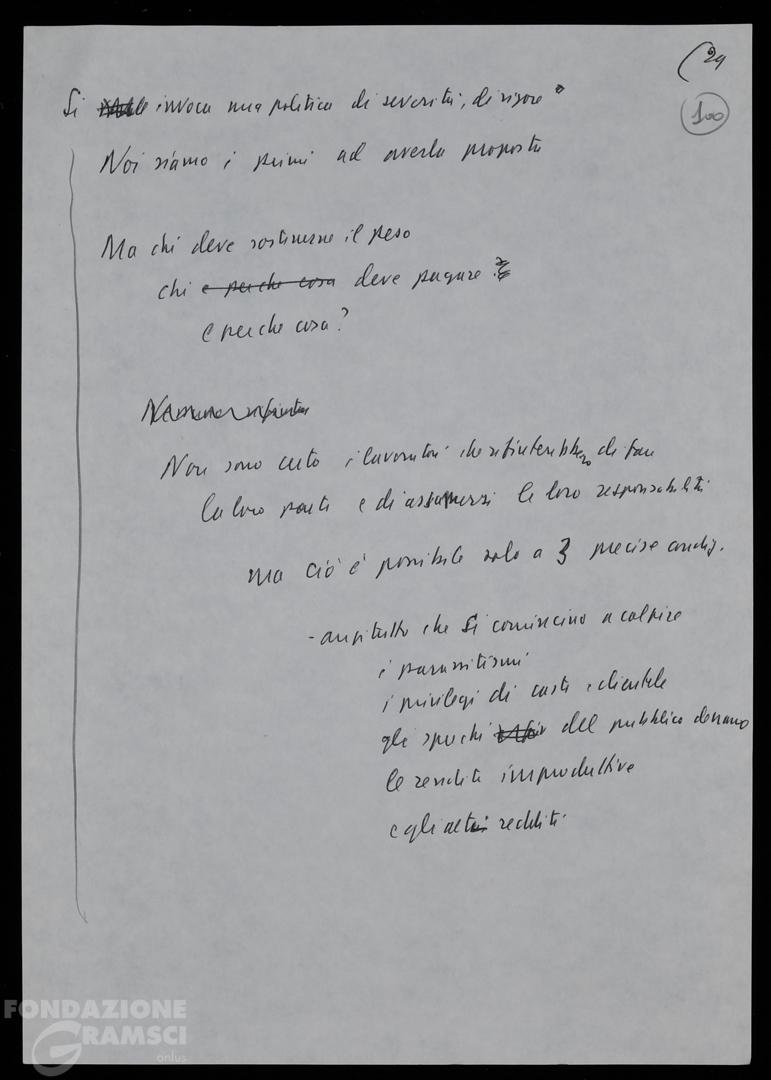 (24
100
Si invoca una politica di severità, di rigore
Noi siamo i primi ad averla proposta
Ma chi deve sostenerne il peso
chi e perche cosa deve pagare?
e perche cosa?
Non sono certo i lavoratori che rifiuterebbero di fare
la loro parte e di assumersi le loro responsabilità
ma ciò è possibile solo a 3 precise condiz.
- anzitutto che si comincino a colpire
i parassitismi
i privilegi di caste e clientele
gli sprechi del pubblico denaro
le rendite improduttive
e gli alti redditi
FONDAZIONE
GRAMSCI
onlus